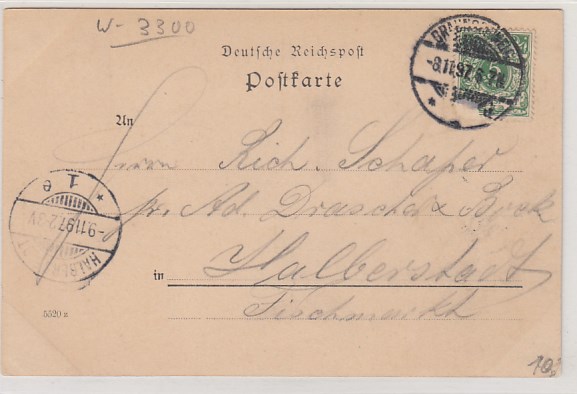 W- 3300
Deutsche Reichspost
Postkarte
BRAUNSCHWEIG
-8.11.97.6-7N.
An
Herrn Rich. Schaper
pr. Ad. Drasche & Beck
* 1 e
-9.11.97.2-3N
HALBERSTADT
in Halberstadt
Fischmarkt
5520 a
10.